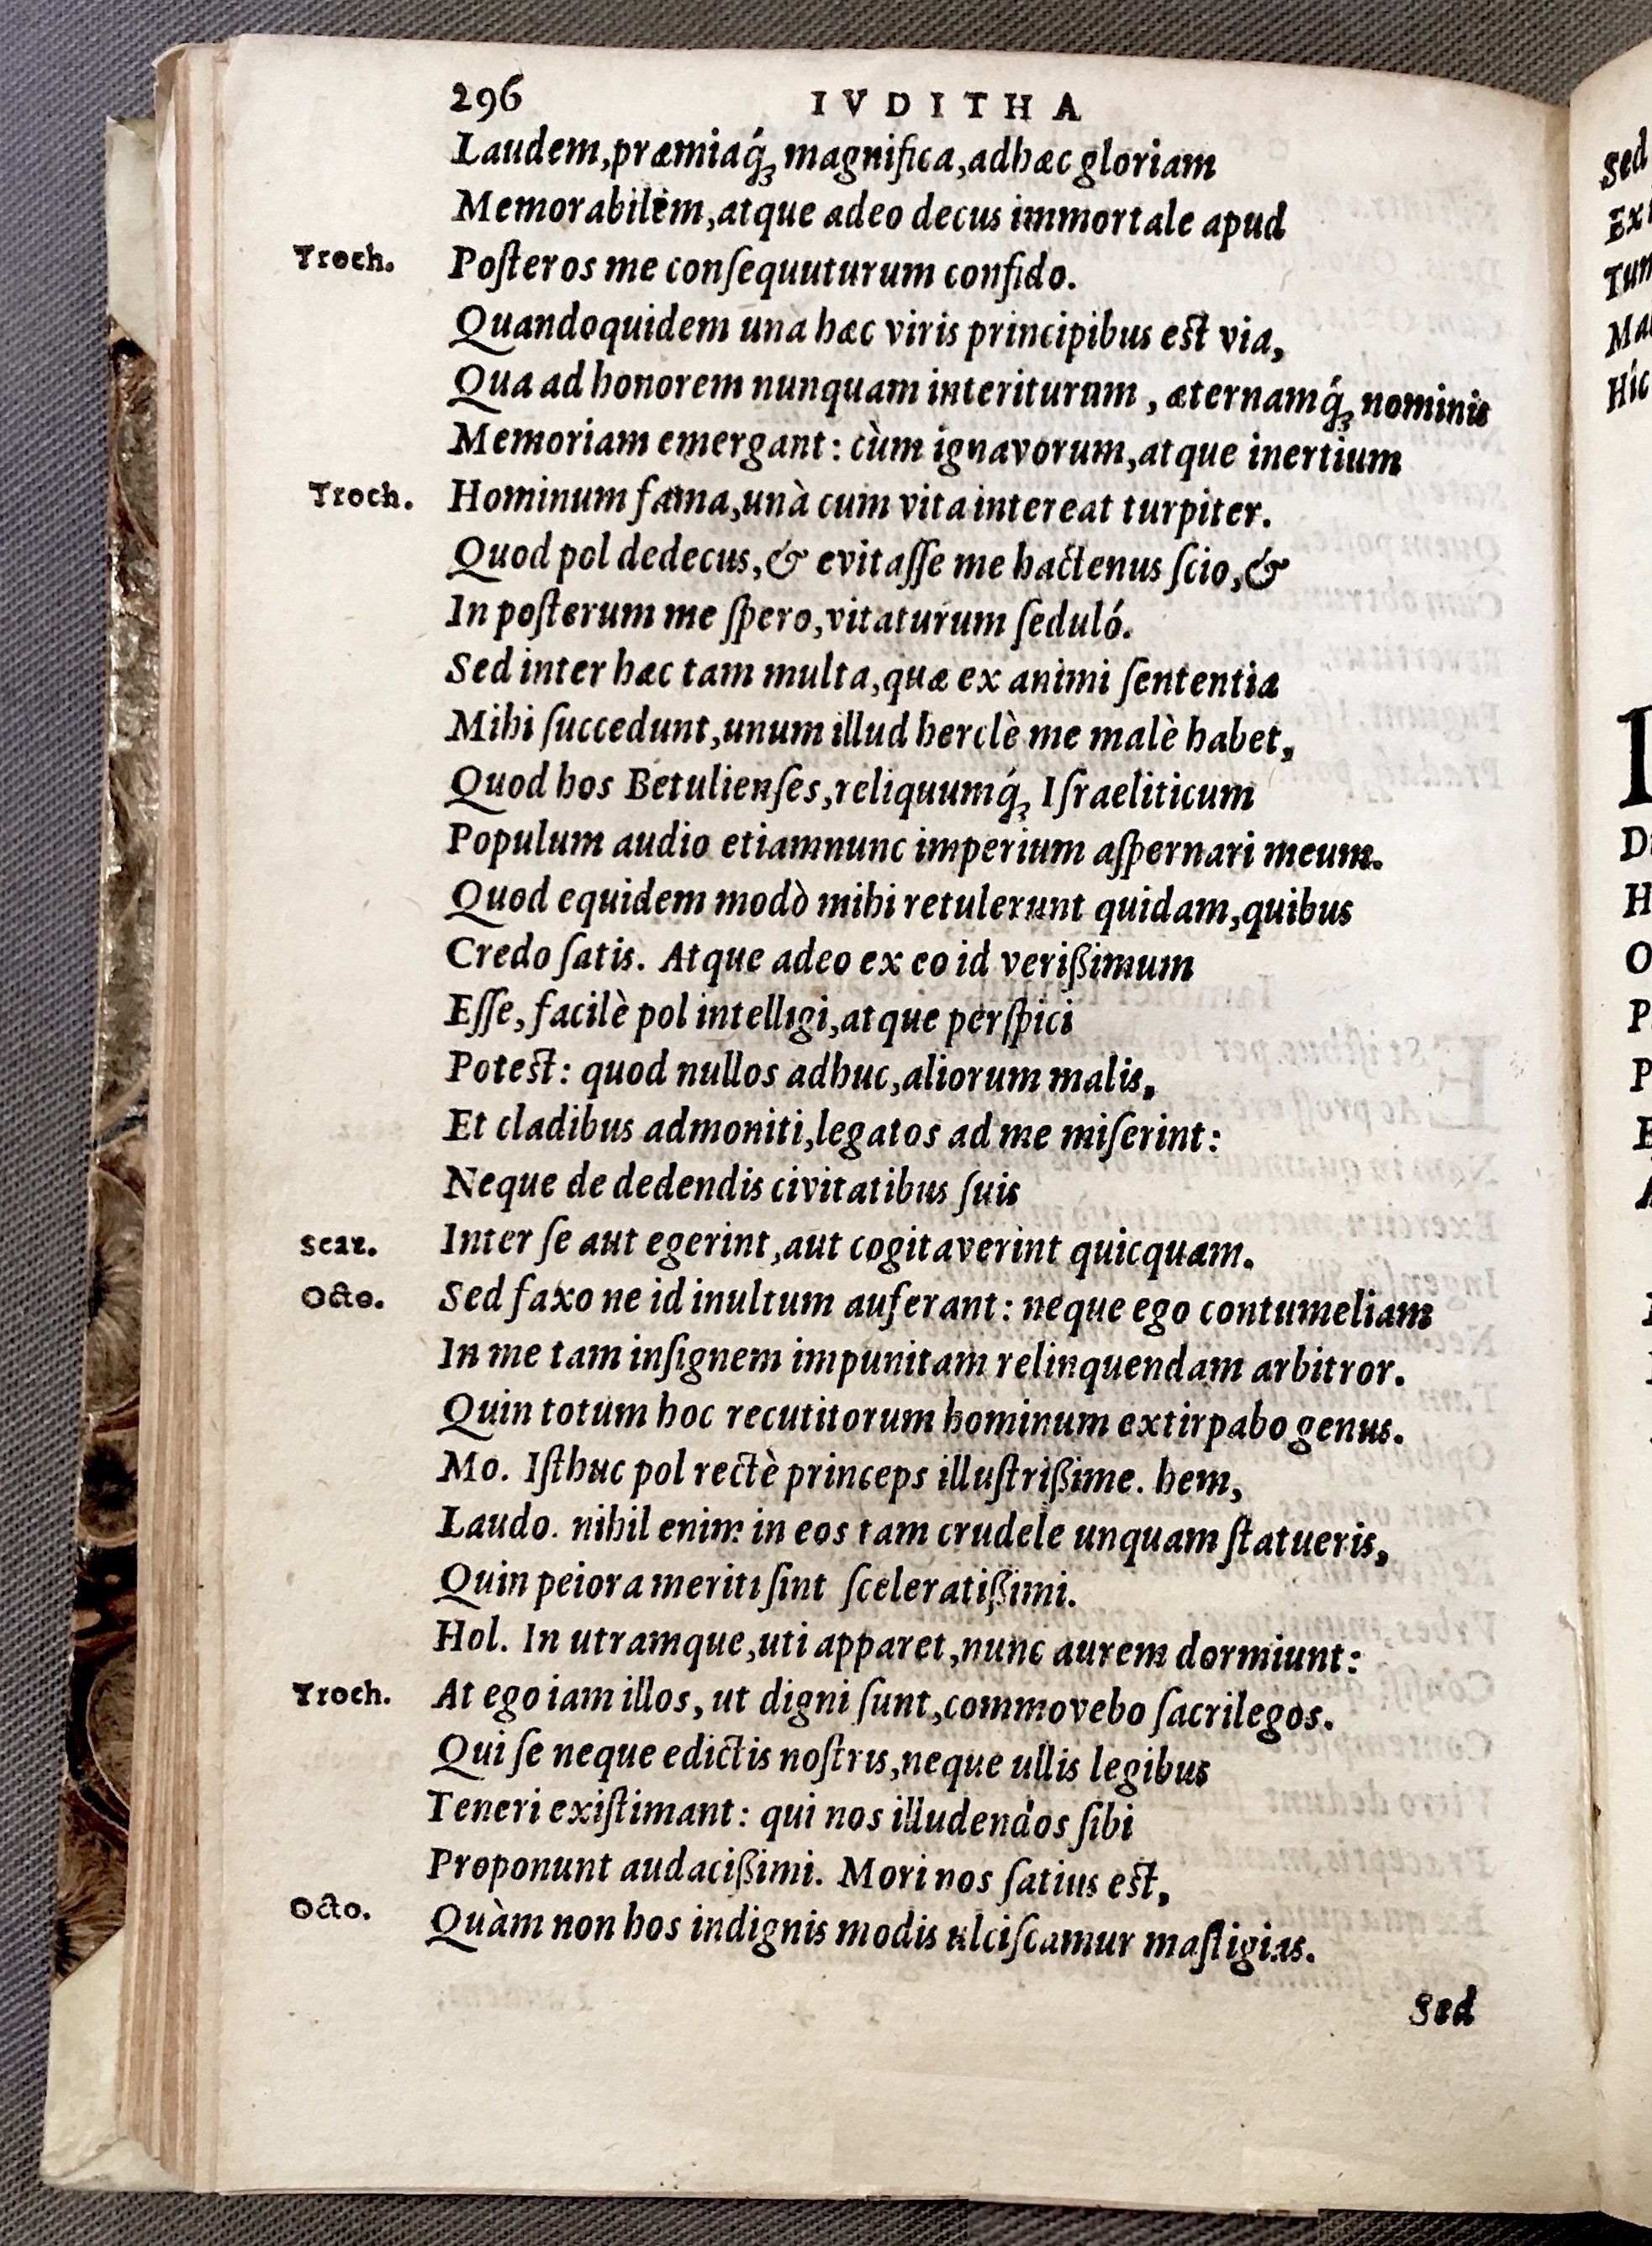 296 IVDITHA
Laudem,præmiaq́ꝫ magnifica,adhæc gloriam
Memorabilem,atque adeo decus immortale apud
Troch. Poſteros me conſequuturum confido.
Quandoquidem una hæc viris principibus est via,
Qua ad honorem nunquam interiturum, æternamq́ꝫ nominis
Memoriam emergant: cùm ignavorum,atque inertium
Troch. Hominum fama,unà cum vita intereat turpiter.
Quod pol dedecus,& evitaſſe me hactenus ſcio,&
In poſterum me ſpero,vitaturum ſeduló.
Sed inter hæc tam multa,quæ ex animi ſententia
Mihi ſuccedunt,unum illud herclè me malè habet,
Quod hos Betulienſes,reliquumq́ꝫ Iſraeliticum
Populum audio etiamnunc imperium aſpernari meum.
Quod equidem modò mihi retulerunt quidam,quibus
Credo ſatis. Atque adeo ex eo id verißimum
Eſſe, facilè pol intelligi,atque perſpici
Potest: quod nullos adhuc,aliorum malis,
Et cladibus admoniti,legatos ad me miſerint:
Neque de dedendis civitatibus ſuis
Scaz. Inter ſe aut egerint,aut cogitaverint quicquam.
Octo. Sed faxo ne id inultum auferant: neque ego contumeliam
In me tam inſignem impunitam relinquendam arbitror.
Quin totum hoc recutitorum hominum extirpabo genus.
Mo. Iſthuc pol rectè princeps illuſtrißime. hem,
Laudo. nihil enim in eos tam crudele unquam ſtatueris,
Quin peiora meriti ſint ſceleratißimi.
Hol. In utramque,uti apparet,nunc aurem dormiunt:
Troch. At ego iam illos, ut digni ſunt,commovebo ſacrilegos.
Qui ſe neque edictis noſtris,neque ullis legibus
Teneri exiſtimant: qui nos illudendos ſibi
Proponunt audacißimi. Mori nos ſatius est,
Octo. Quàm non hos indignis modis ulciſcamur maſtigias.
Sed